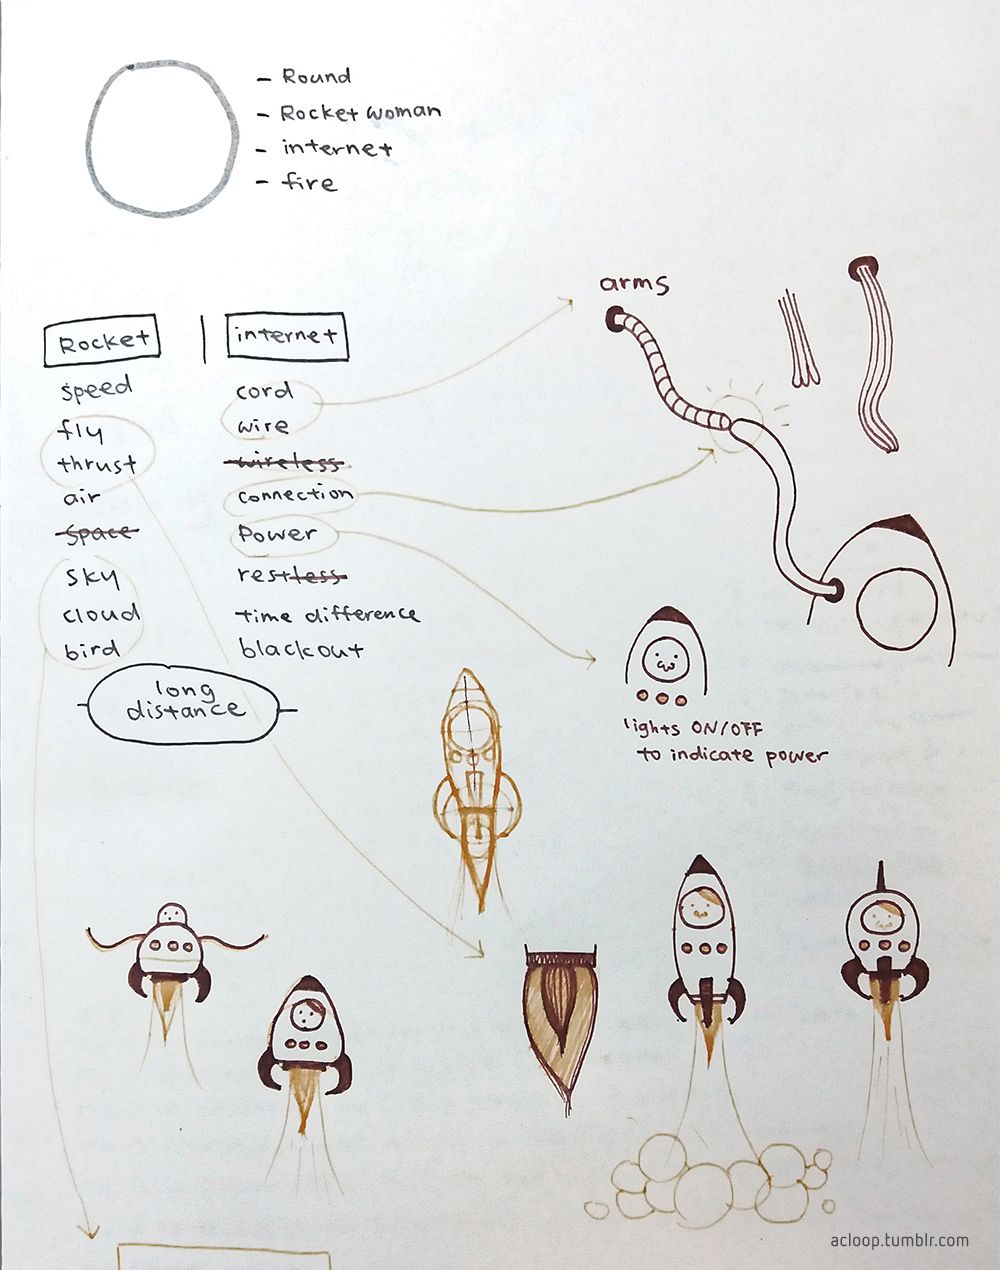 - Round
- Rocket woman
- internet
- fire
arms
Rocket | internet
speed
fly
thrust
air
space
sky
cloud
bird
cord
wire
wireless
connection
Power
restless
time difference
blackout
long
distance
lights ON/OFF
to indicate power
acloop.tumblr.com